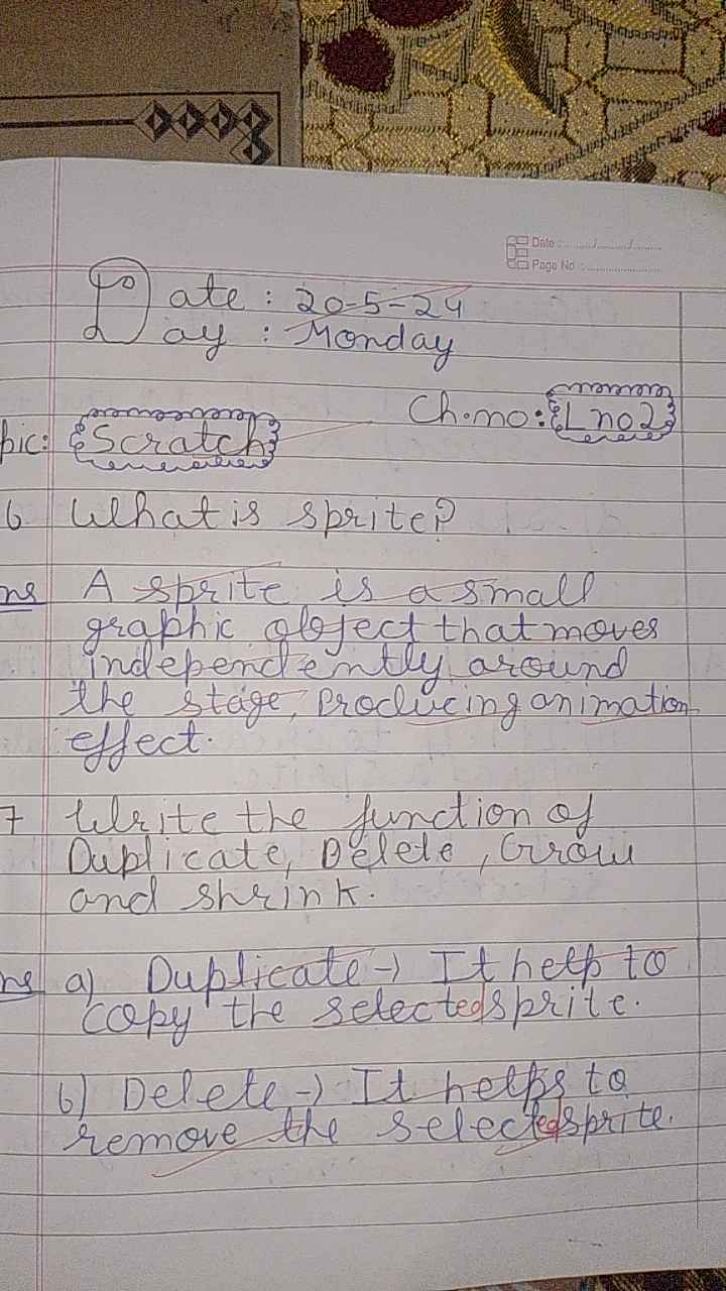 Date : ......../......../........
Page No : ........................
Date : 20-5-24
Day : Monday
Ch.no: L no2
pic: Scratch
6 What is sprite?
ns A sprite is a small
graphic object that moves
independently around
the stage, producing animation
effect.
7 Write the function of
Duplicate, Delete, Grow
and shrink.
ns a) Duplicate → It help to
copy the selected sprite.
b) Delete → It helps to
remove the selected sprite.